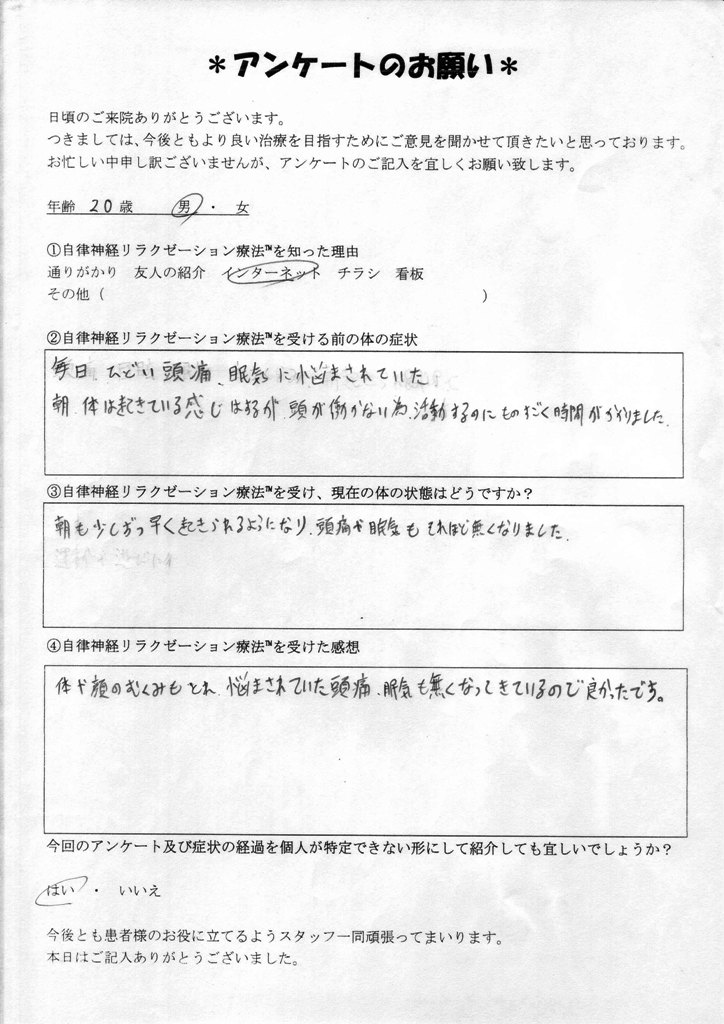 ＊アンケートのお願い＊
日頃のご来院ありがとうございます。
つきましては、今後ともより良い治療を目指すためにご意見を聞かせて頂きたいと思っております。
お忙しい中申し訳ございませんが、アンケートのご記入を宜しくお願い致します。
年齢 20歳 男・女
①自律神経リラクゼーション療法℠を知った理由
通りがかり 友人の紹介 インターネット チラシ 看板
その他（ ）
②自律神経リラクゼーション療法℠を受ける前の体の症状
毎日、ひどい頭痛、眠気に悩まされていた
朝、体は起きている感じはするが、頭が働かない為、活動するのにものすごく時間がかかりました。
③自律神経リラクゼーション療法℠を受け、現在の体の状態はどうですか？
朝も少しずつ早く起きられるようになり、頭痛や眠気もそれほど無くなりました。
④自律神経リラクゼーション療法℠を受けた感想
体や顔のむくみもとれ、悩まされていた頭痛、眠気も無くなってきているので良かったです。
今回のアンケート及び症状の経過を個人が特定できない形にして紹介しても宜しいでしょうか？
はい ・ いいえ
今後とも患者様のお役に立てるようスタッフ一同頑張ってまいります。
本日はご記入ありがとうございました。